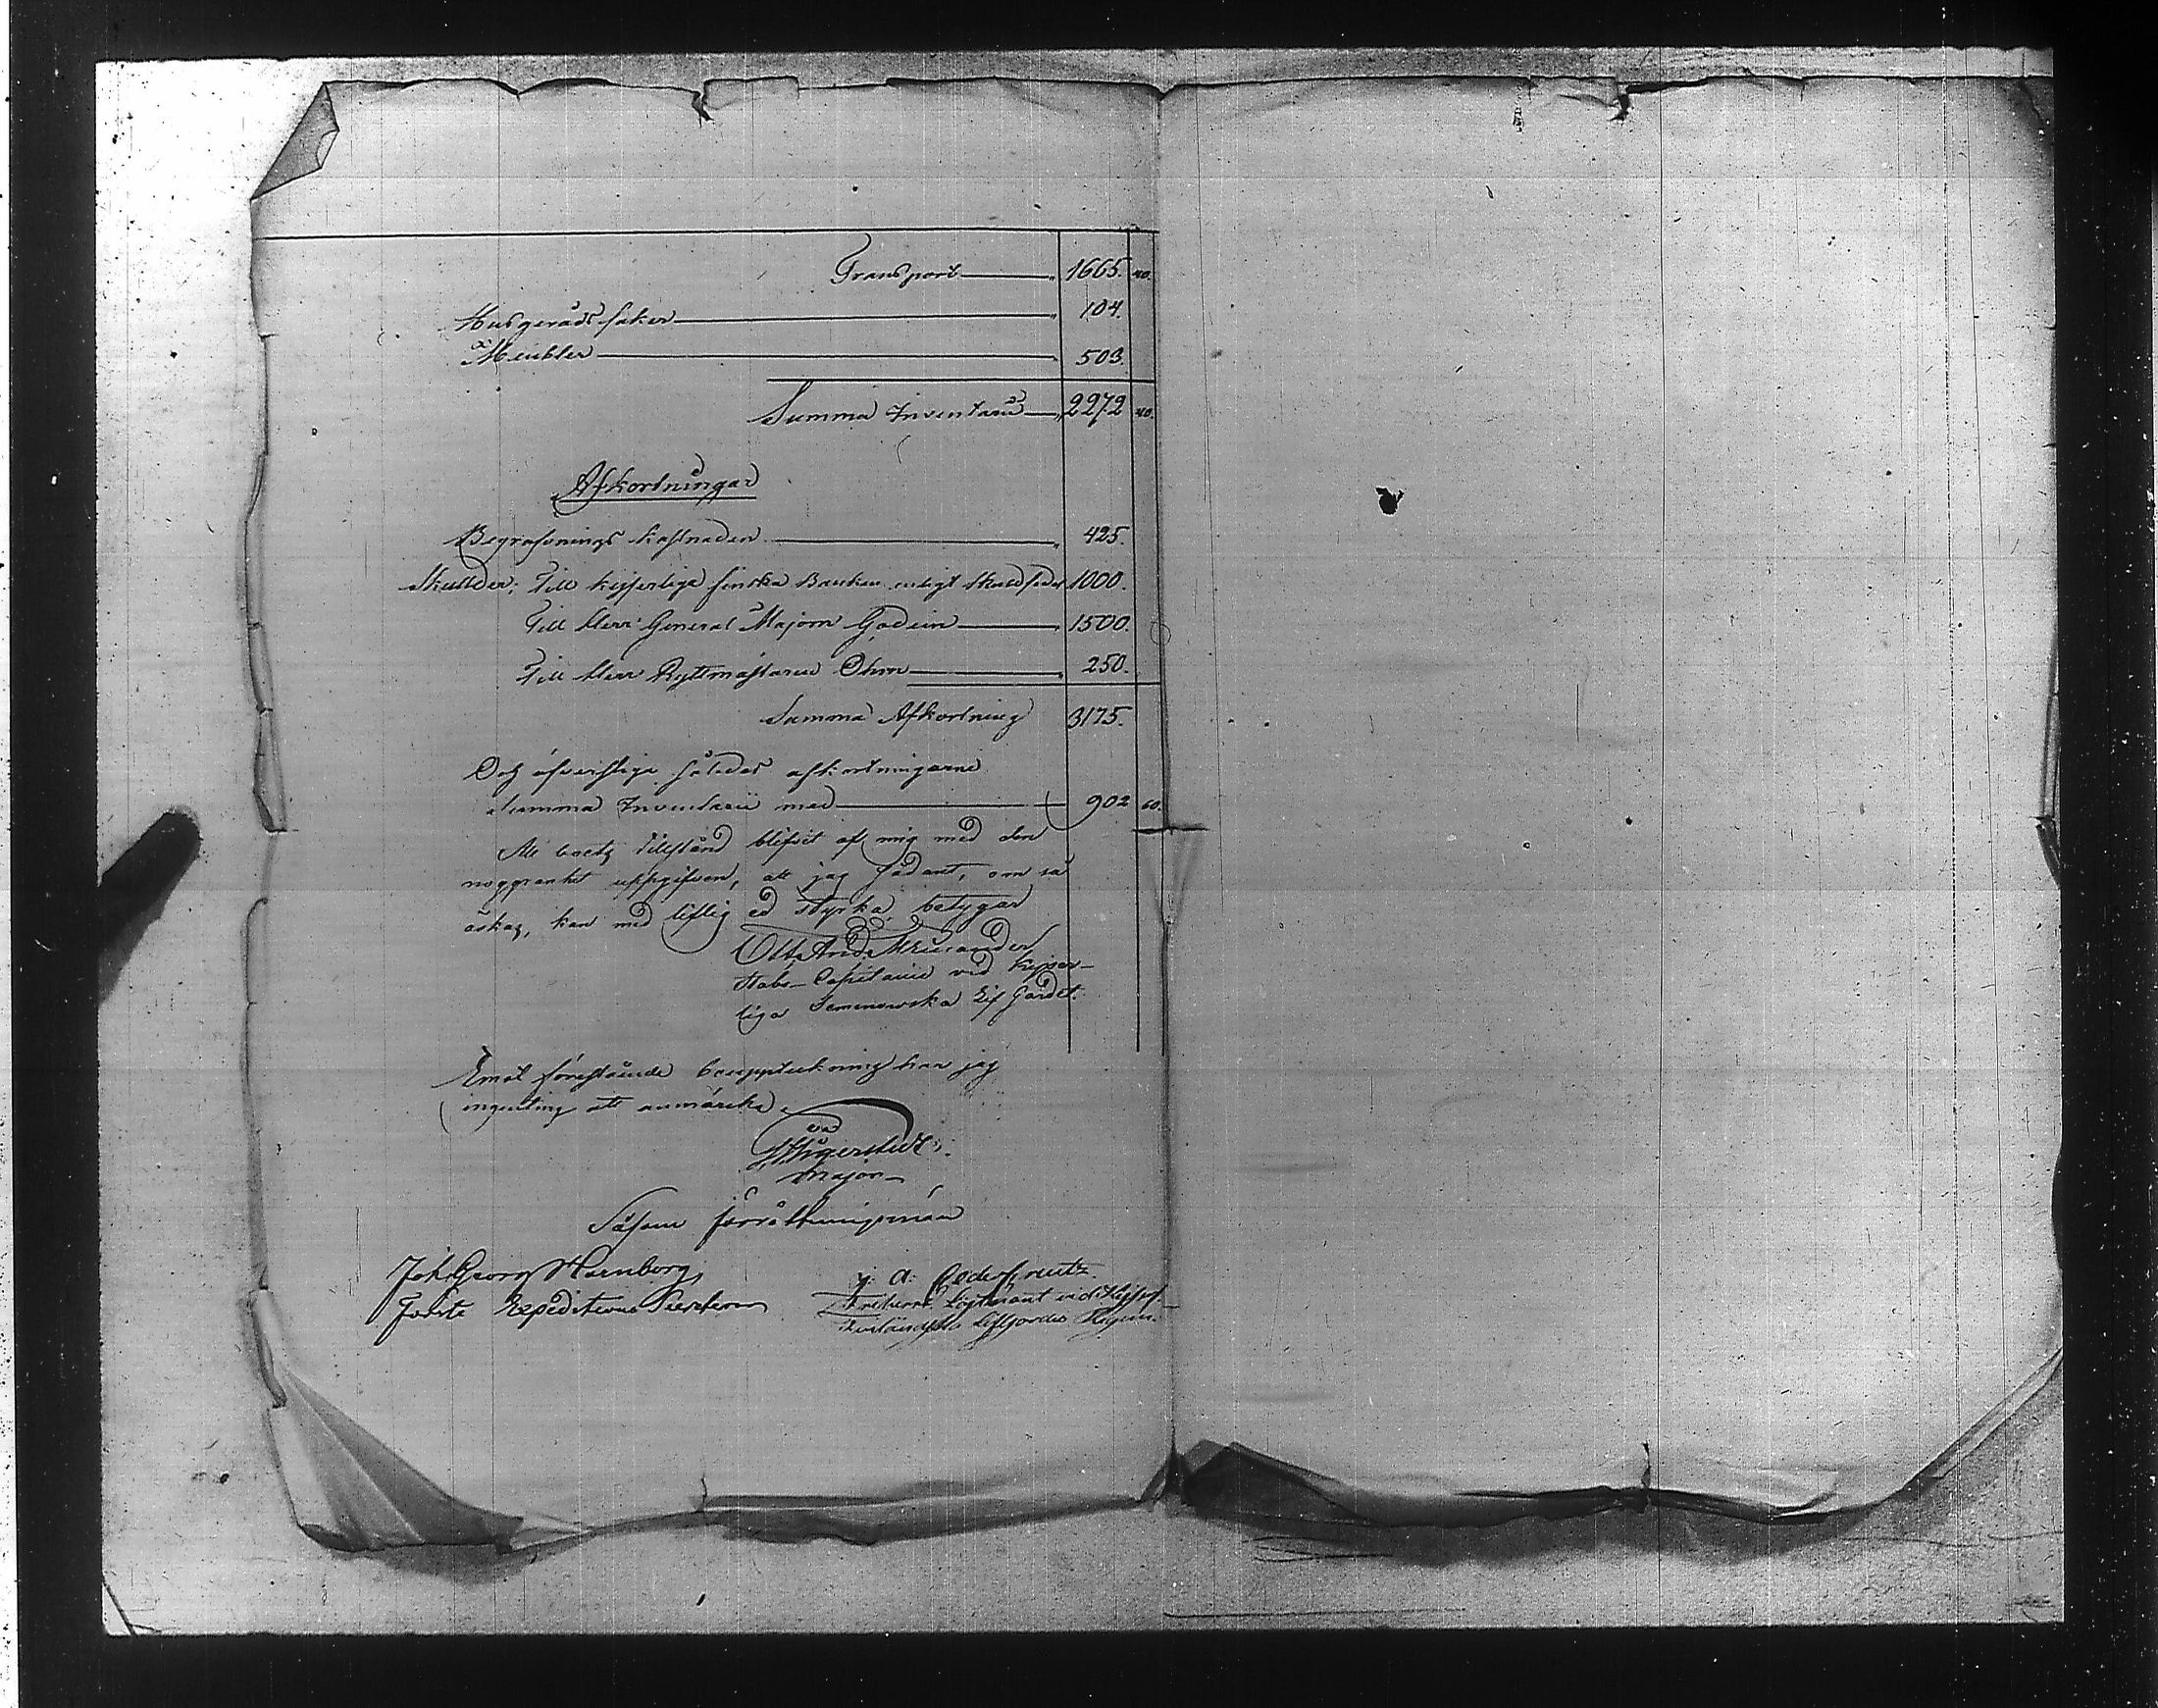 Transport 1665. 40.
Husgeråds saker 104.
Meubler 503.
Summa Inventarii 2272 40.
Afkortningar
Begrafnings kostnaden 425.
Skulder; Till Kejserliga finska Banken enligt skuldsedel 1000.
Till Herr General Majorn Godein 1500.
Till Herr Ryttmästaren Ohm 250.
Summa Afkortning 3175.
Och öfverstiga således afkortningarne
summa Inventarii med 902 60.
Att boets tillstånd blifvit af mig med den
noggranhet uppgifven, att jag sådant, om så
äskas, kan med liflig ed styrka, betygar
Otto And:
Stabs-Capitaine vid Kejser-
liga Semenowska Lif Gardet.
Emot föreståënde bouppteckning har jag
ingenting att anmärka
Major
Såsom förrättningsmän
Joh: Georg Hornborg,
Förste Expeditions
J: A: Cedercreutz
Friherre, Löjtnant vid Kejserl.
Finländska Lifgardes Regim.